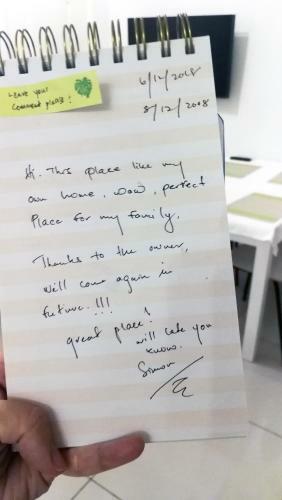 Leave your
Comment please!
6/12/2018
8/12/2018
Hi. This place like my
own home. wow, perfect
Place for my family.
Thanks to the owner,
will come again in
future.!!!
great place!
will let you
know.
Simon